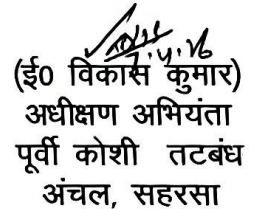 7.4.26
(ई० विकास कुमार)
अधीक्षण अभियंता
पूर्वी कोशी तटबंध
अंचल, सहरसा